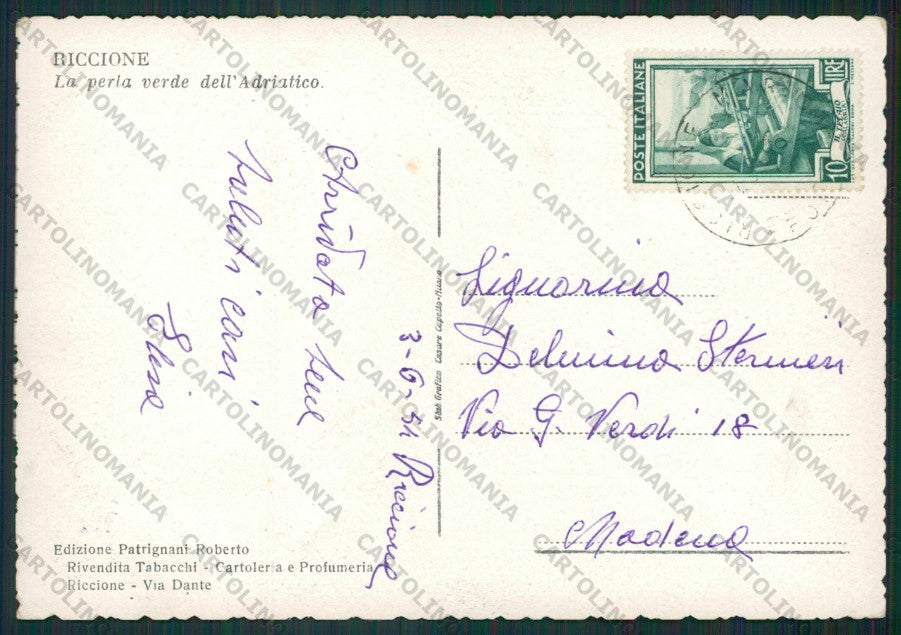 RICCIONE
La perla verde dell'Adriatico.
POSTE ITALIANE
LIRE
10
Arrivata bene
saluti cari
3-6-54 Riccione
Stab. Grafico Cesare Capello-Milano
Signorina
Delmina Stermieri
Via G. Verdi 18
Modena
Edizione Patrignani Roberto
Rivendita Tabacchi - Cartoleria e Profumeria
Riccione - Via Dante
CARTOLINOMANIA